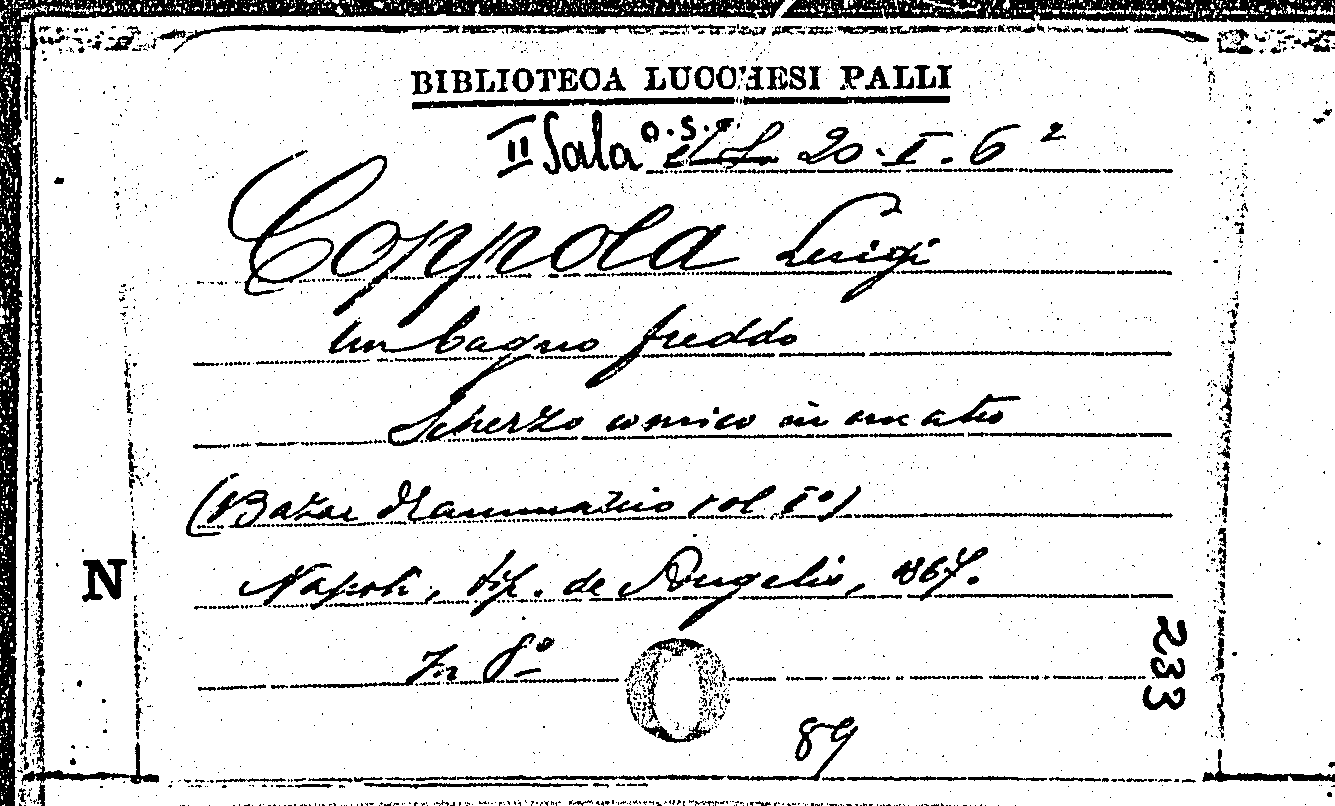 BIBLIOTECA LUCCHESI PALLI
II Sala O.S. 20. I. 6²
Coppola Luigi
Un bagno freddo
Scherzo comico in un atto
(Bazar Drammatico vol I°)
Napoli, tip. de Angelis, 1867.
In 8°
N
233
89